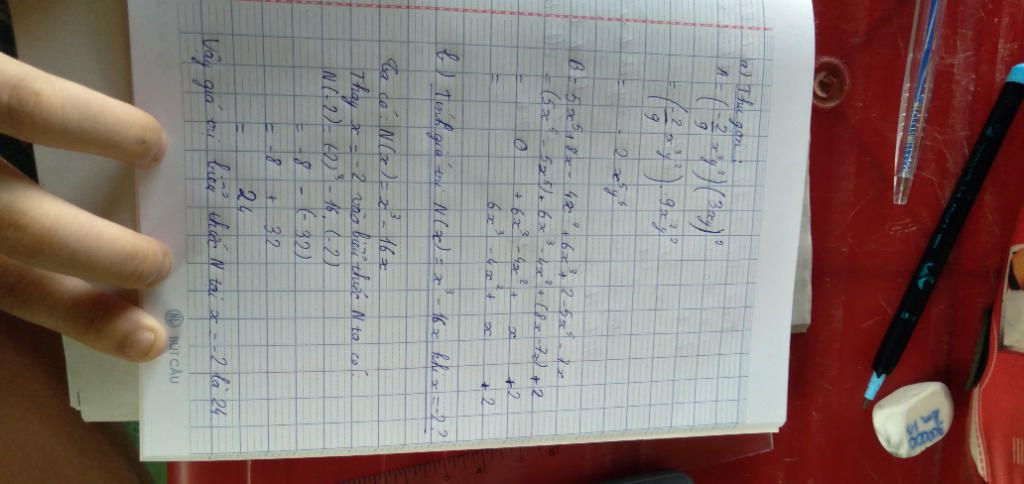 a) Thu gọn :
A = (-2/9 x³y²)(-3xy)²
= (-2/9 x³y²).9x²y²
= - 2x⁵y⁴
B = 5x⁵ + 8x - 4x² + 6x³ + 2 - 5x⁵ - 7x
= (5x⁵ - 5x⁵) + 6x³ - 4x² + (8x - 7x) + 2
= 0 + 6x³ - 4x² + x + 2
= 6x³ - 4x² + x + 2
b) Tính giá trị N(x) = x³ - 16x khi x = -2 ?
Ta có: N(x) = x³ - 16x
Thay x = -2 vào biểu thức N ta có:
N(-2) = (-2)³ - 16.(-2)
= -8 - (-32)
= -8 + 32
= 24
Vậy giá trị biểu thức N tại x = -2 là 24.
BÚT CÂU